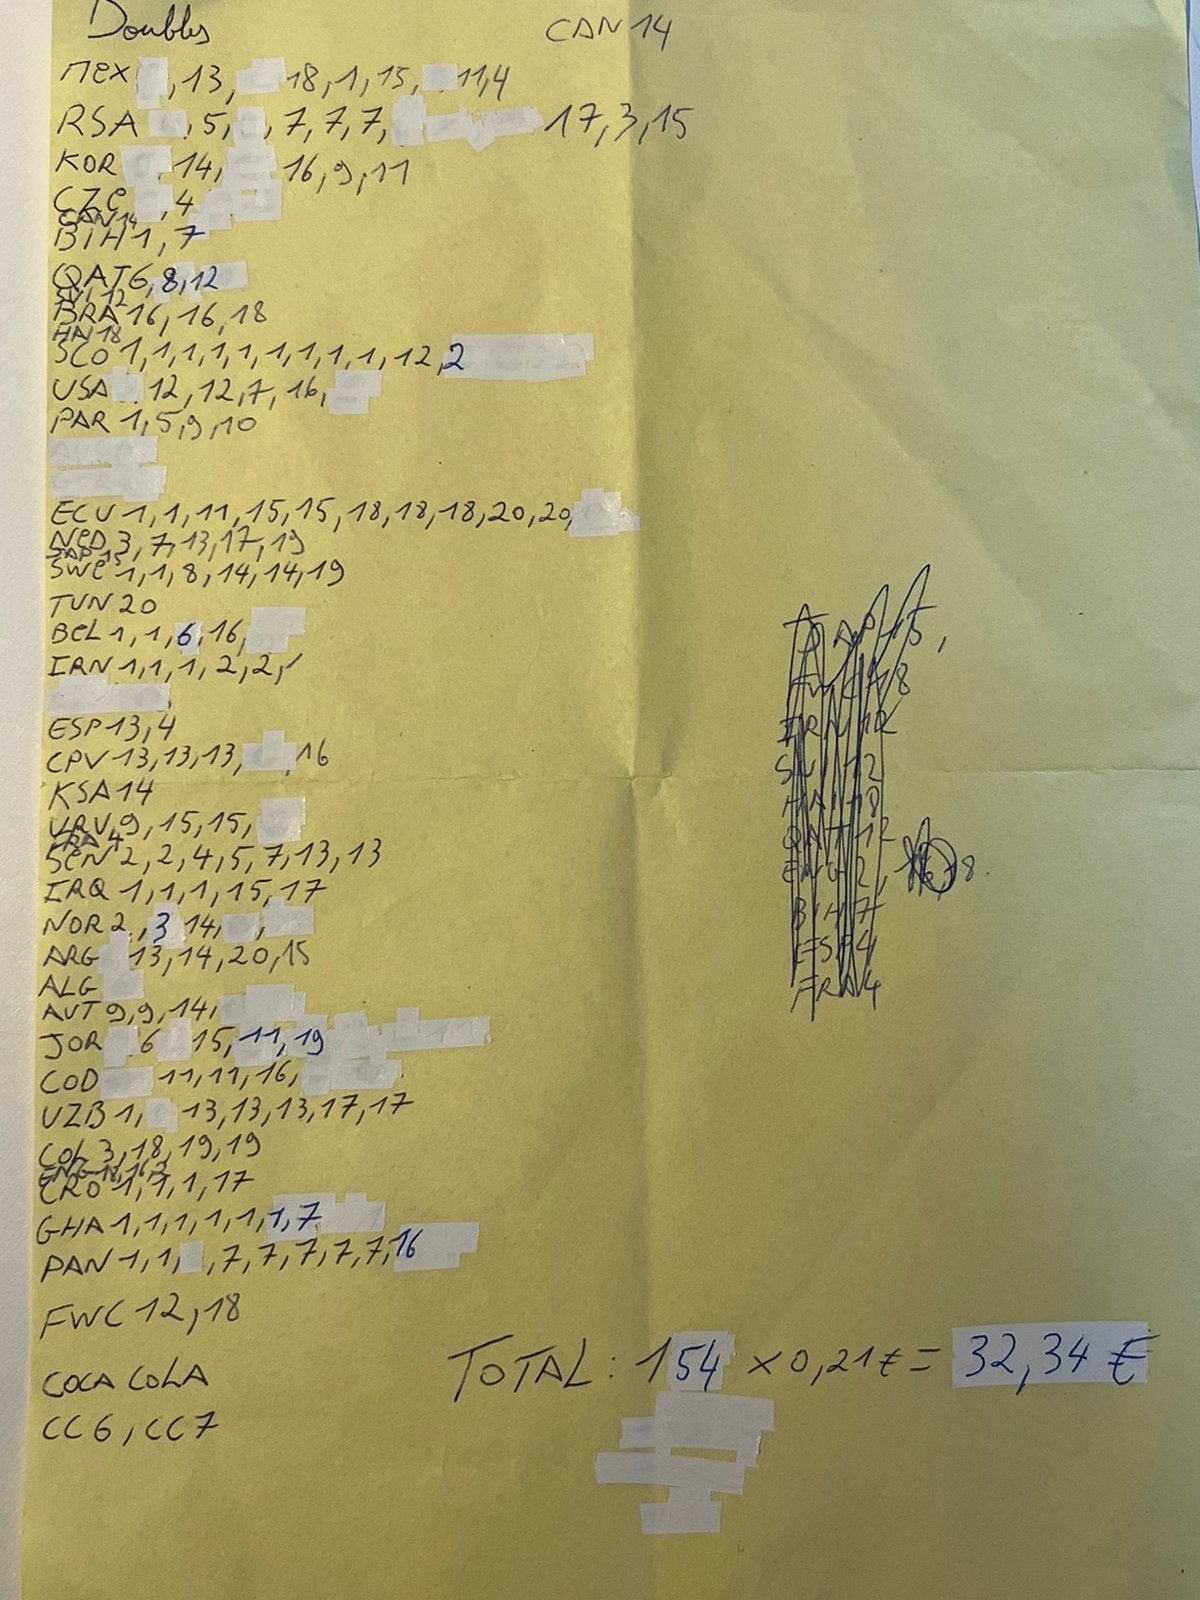 Doubles
CAN 14
MEX ,13, 18,1,15, 11,4
RSA ,5, ,7,7,7, 17,3,15
KOR 14, 16,9,11
CZE ,4
CAN 14
BIH 1,7
QAT 6,8,12
SUI 12
BRA 16,16,18
HAI 18
SCO 1,1,1,1,1,1,1,1,1,12,2
USA 12,12,7,16,
PAR 1,5,9,10
ECU 1,1,11,15,15,18,18,18,20,20,
NED 3,7,13,17,19
JAP 15
SWE 1,1,8,14,14,19
TUN 20
BEL 1,1,6,16,
IRN 1,1,1,2,2,
ESP 13,4
CPV 13,13,13, ,16
KSA 14
URU 9,15,15,
FRA 4
SEN 2,2,4,5,7,13,13
IRQ 1,1,1,15,17
NOR 2,,3 14, ,
ARG 13,14,20,15
ALG
AUT 9,9,14,
JOR 6 15,11,19
COD 11,11,16,
UZB 1, 13,13,13,17,17
COL 3,18,19,19
CRO 1,1,1,17
GHA 1,1,1,1,1,1,7
PAN 1,1, ,7,7,7,7,7,16
FWC 12,18
TOTAL: 154 x 0,21€ = 32,34 €
COCA COLA
CC6, CC7